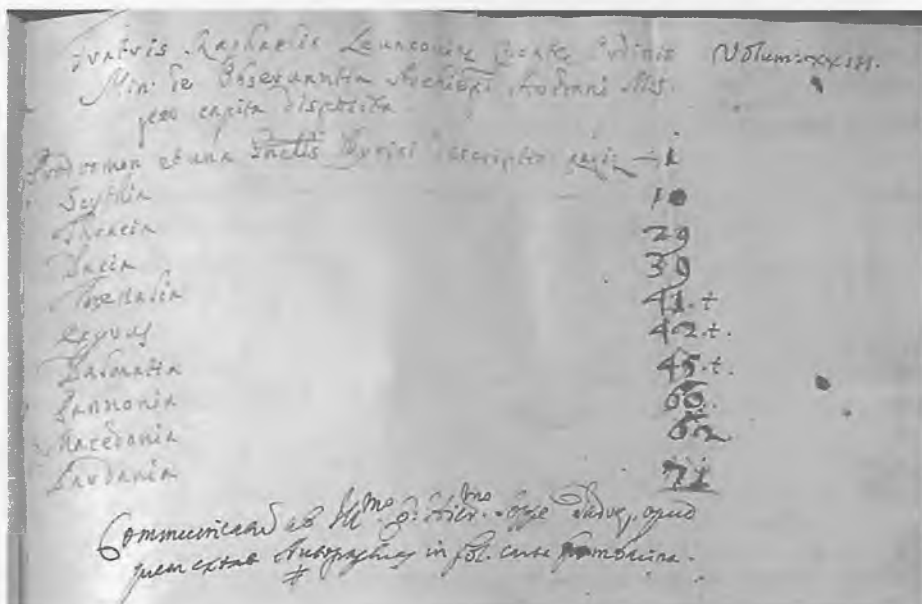 Fratris Raphaelis Levacovich Croatae Ordinis Volum: XXIII.
Min: de Observantia Archiepi Acridani Mss.
per capita disposita
et una Turisi descriptio pagi — 1
Scythia 10
Thracia 29
Dacia 39
Thessalia 41.t
Epyrus 42.t.
Dalmatia 45.t.
Pannonia 60.
Macedonia 62
Dardania 71
Communicatū ab Illmo D: apud
quem extat Autographus in fol. bombicina.